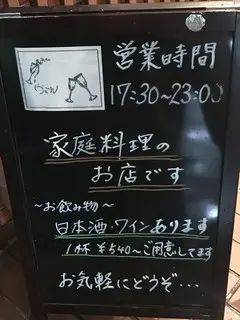 営業時間
17:30~23:00
家庭料理の
お店です
~お飲み物~
日本酒・ワインあります
1杯 ¥540~ご用意してます
お気軽にどうぞ・・・